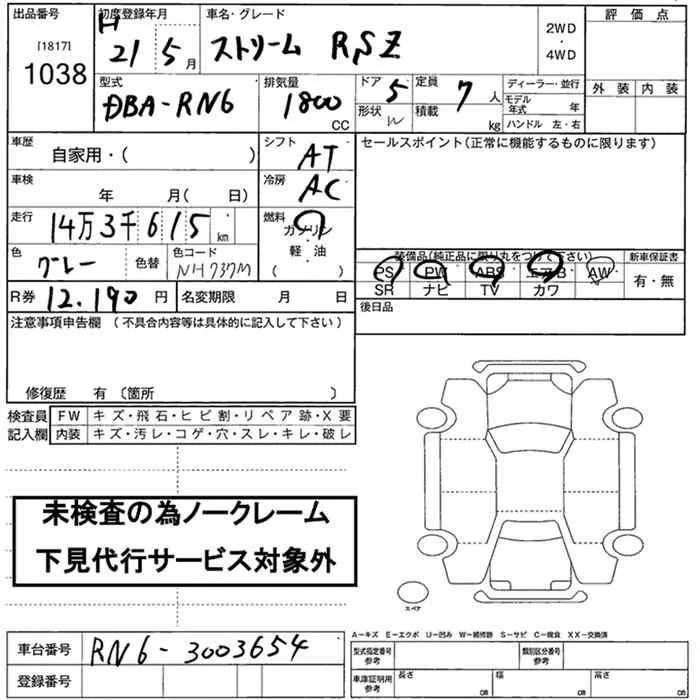 出品番号 初度登録年月 車名・グレード 評価点
[1817] 1038 H 21 5月 ストリーム RSZ 2WD・4WD
型式 排気量 ドア 5 定員 7人 ディーラー・並行 外装 内装
DBA-RN6 1800 CC 形状 W 積載 kg モデル年式 年
ハンドル 左・右
車歴 自家用・( ) シフト AT セールスポイント(正常に機能するものに限ります)
車検 年 月( 日) 冷房 AC
走行 14万3千615km 燃料 ガソリン
色 グレー 色替 色コード NH737M 軽・油 ( )
装備品(純正品に限り丸をつけて下さい) 新車保証書
PS PW ABS エアB AW 有・無
SR ナビ TV カワ
R券 12,190円 名変期限 月 日 後日品
注意事項申告欄 (不具合内容等は具体的に記入して下さい)
修復歴 有 〔箇所 〕
検査員記入欄 FW キズ・飛石・ヒビ割・リペア跡・X要
内装 キズ・汚レ・コゲ・穴・スレ・キレ・破レ
未検査の為ノークレーム
下見代行サービス対象外
スペア
A−キズ E−エクボ U−凹み W−補修跡 S−サビ C−腐食 XX−交換済
車台番号 RN6-3003654 型式指定番号 参考 類別区分番号 参考
登録番号 車庫証明用 参考 長さ cm 幅 cm 高さ cm